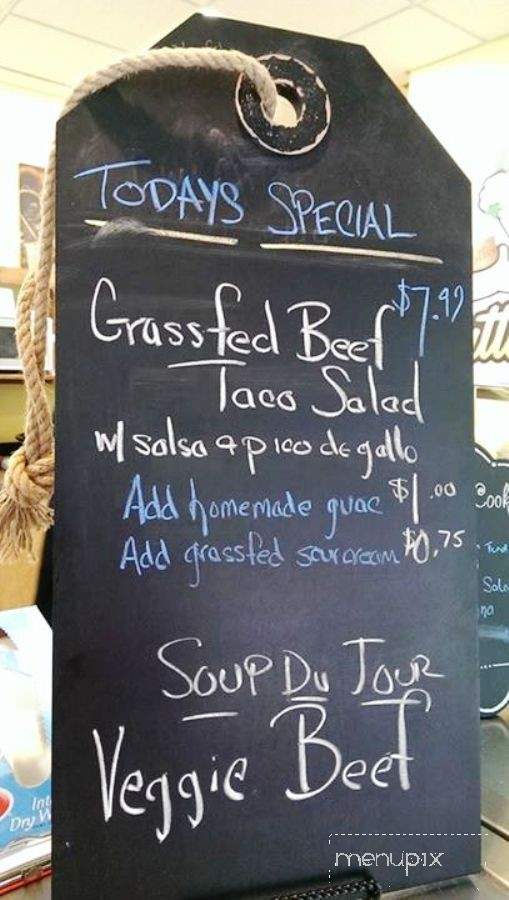 TODAYS SPECIAL
Grassfed Beef $7.99
Taco Salad
w/ salsa & pico de gallo
Add homemade guac $1.00
Add grassfed sourcream $0.75
SOUP DU JOUR
Veggie Beef
menupix